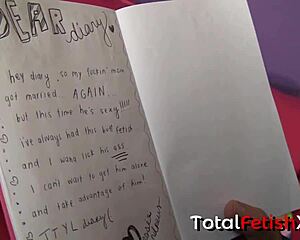 DEAR
diary
hey diary, so my fuckin' mom
got married... AGAIN...
but this time he's sexy!!!!!
i've always had this butt fetish
and i wana lick his ass
I can't wait to get him alone
and take advantage of him!
TTYL diary!
TotalFetish